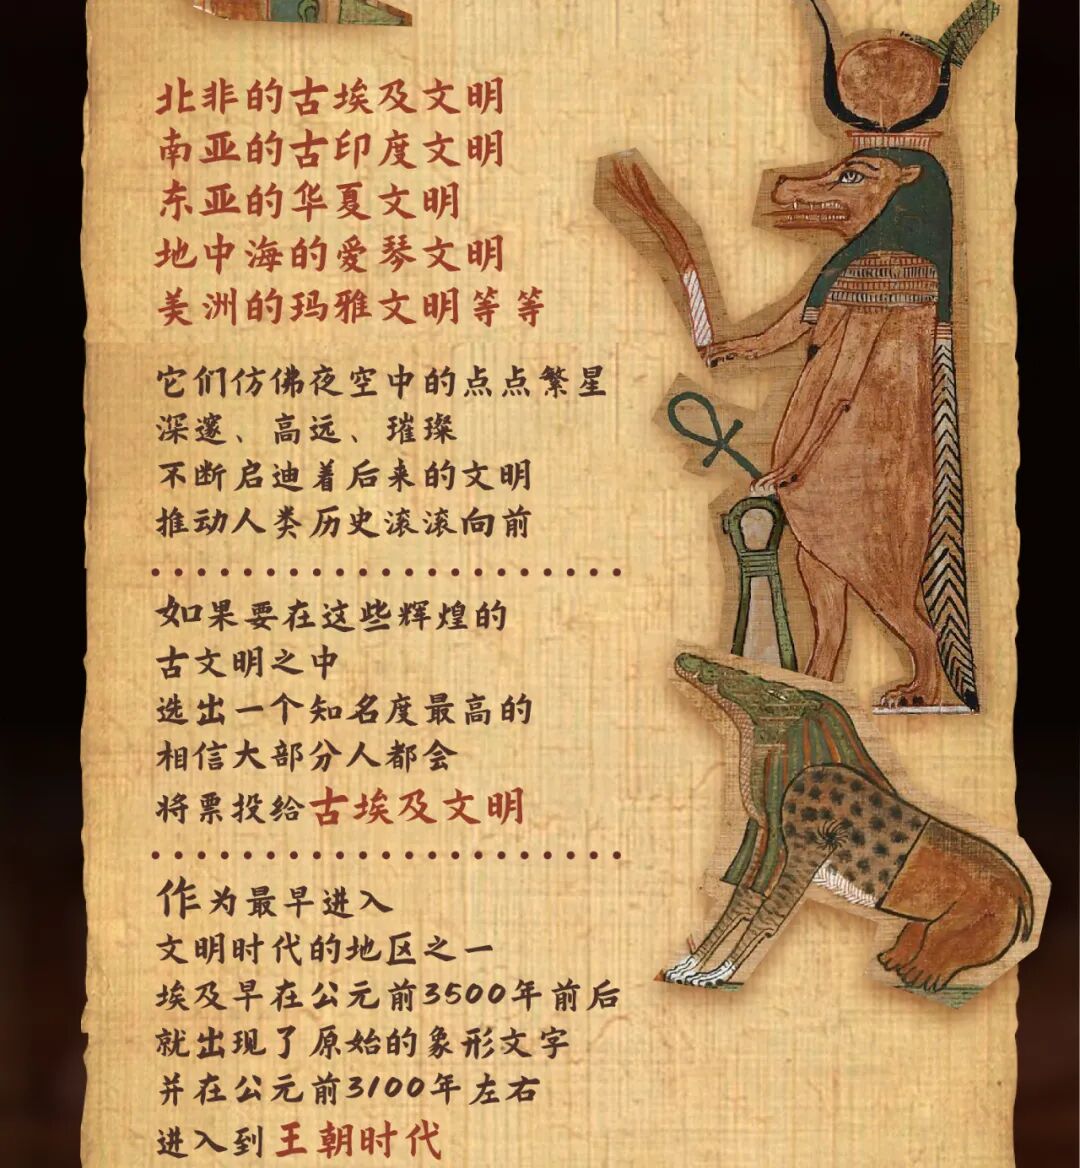 北非的古埃及文明
南亚的古印度文明
东亚的华夏文明
地中海的爱琴文明
美洲的玛雅文明等等
它们仿佛夜空中的点点繁星
深邃、高远、璀璨
不断启迪着后来的文明
推动人类历史滚滚向前
如果要在这些辉煌的
古文明之中
选出一个知名度最高的
相信大部分人都会
将票投给古埃及文明
作为最早进入
文明时代的地区之一
埃及早在公元前3500年前后
就出现了原始的象形文字
并在公元前3100年左右
进入到王朝时代